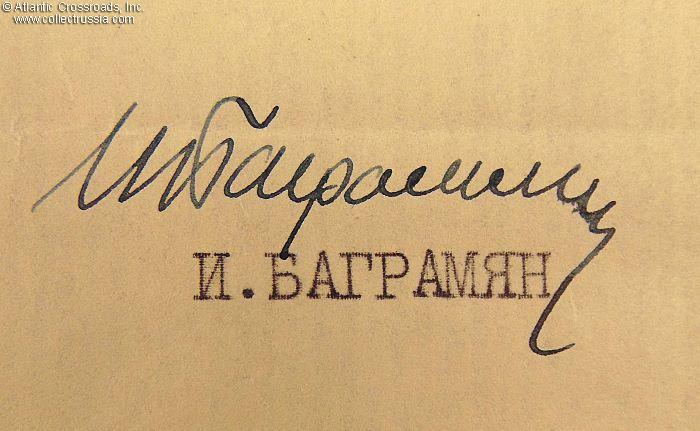 © Atlantic Crossroads, Inc.
www.collectrussia.com
И Баграмян
И. БАГРАМЯН